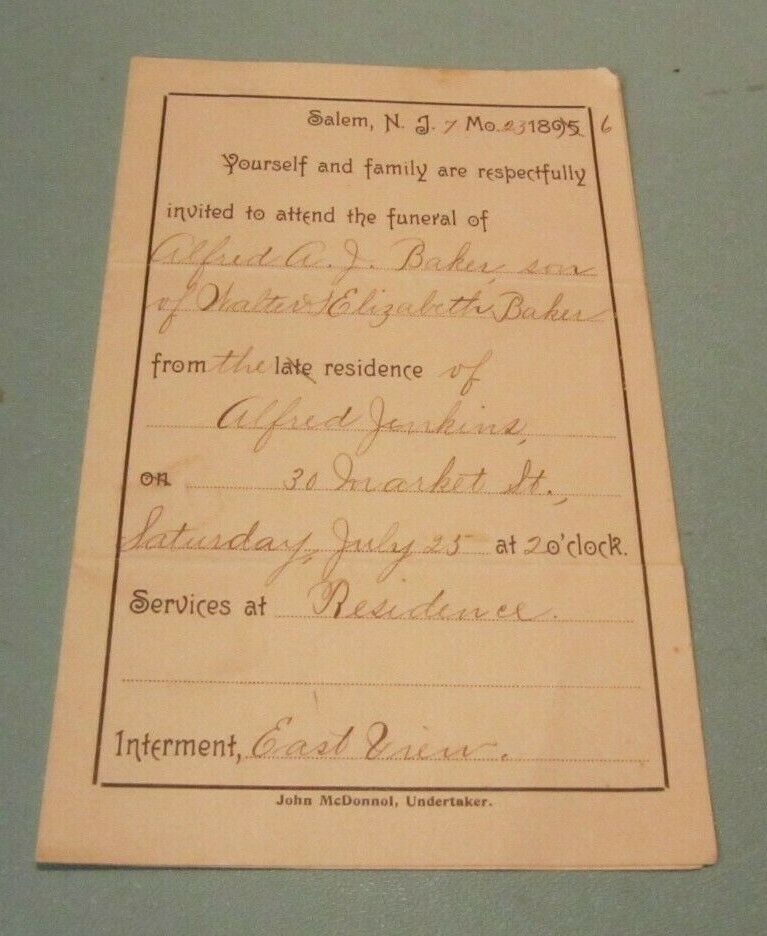 Salem, N. J. 7 Mo. 23 1895 6
Yourself and family are respectfully
invited to attend the funeral of
Alfred A. J. Baker, son
of Walter & Elizabeth Baker
from the late residence of
Alfred Jenkins,
on 30 Market St.,
Saturday, July 25 at 2 o'clock.
Services at Residence.
Interment, East View.
John McDonnol, Undertaker.